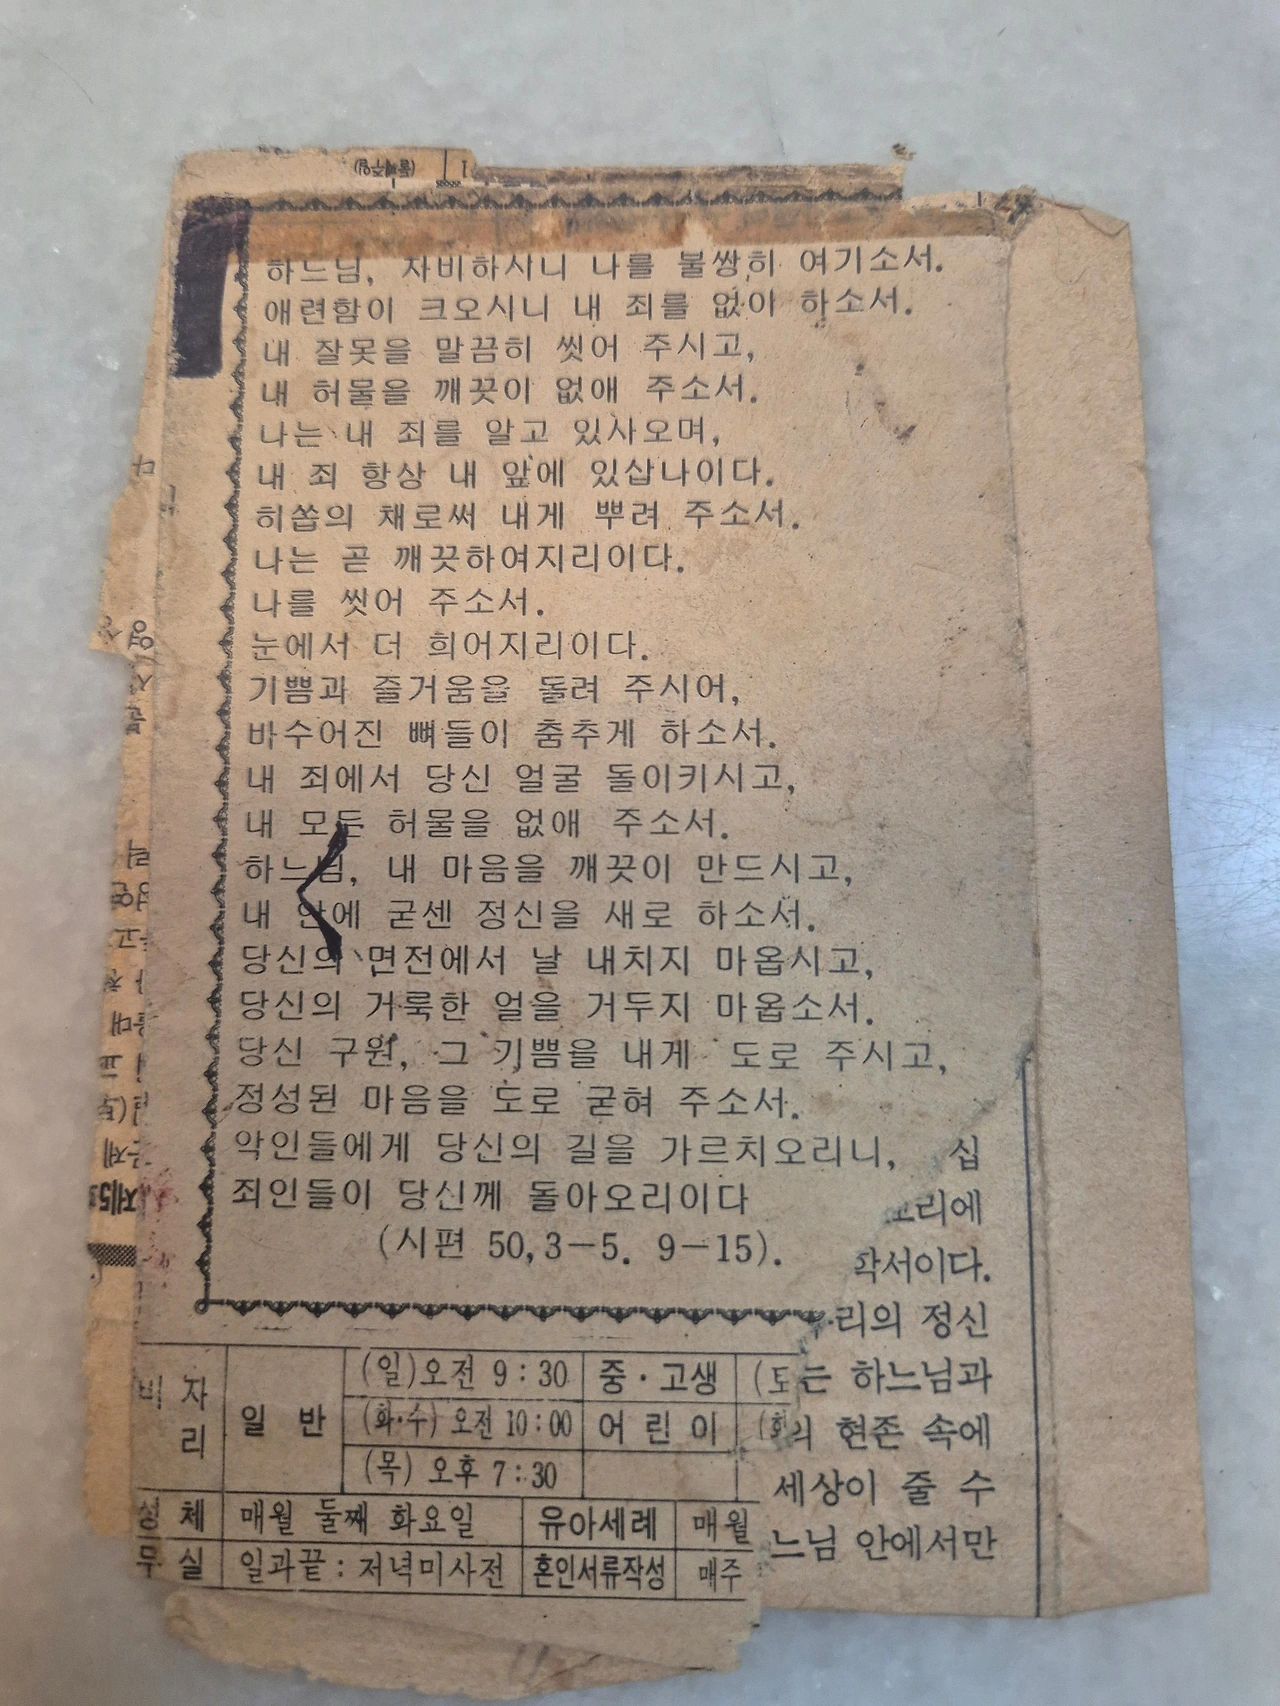 (둘째주일)
하느님, 자비하시니 나를 불쌍히 여기소서.
애련함이 크오시니 내 죄를 없이 하소서.
내 잘못을 말끔히 씻어 주시고,
내 허물을 깨끗이 없애 주소서.
나는 내 죄를 알고 있사오며,
내 죄 항상 내 앞에 있삽나이다.
히쏩의 채로써 내게 뿌려 주소서.
나는 곧 깨끗하여지리이다.
나를 씻어 주소서.
눈에서 더 희어지리이다.
기쁨과 즐거움을 돌려 주시어,
바수어진 뼈들이 춤추게 하소서.
내 죄에서 당신 얼굴 돌이키시고,
내 모든 허물을 없애 주소서.
하느님, 내 마음을 깨끗이 만드시고,
내 안에 굳센 정신을 새로 하소서.
당신의 면전에서 날 내치지 마옵시고,
당신의 거룩한 얼을 거두지 마옵소서.
당신 구원, 그 기쁨을 내게 도로 주시고,
정성된 마음을 도로 굳혀 주소서.
악인들에게 당신의 길을 가르치오리니,
죄인들이 당신께 돌아오리이다
(시편 50,3-5. 9-15).
십
리에
서이다.
리의 정신
는 하느님과
현존 속에
세상이 줄 수
느님 안에서만
자 리 일 반 (일)오전 9:30 중·고생
(화·수) 오전 10:00 어린이
(목) 오후 7:30
성 체 매월 둘째 화요일 유아세례 매월
무 실 일과끝: 저녁미사전 혼인서류작성 매주